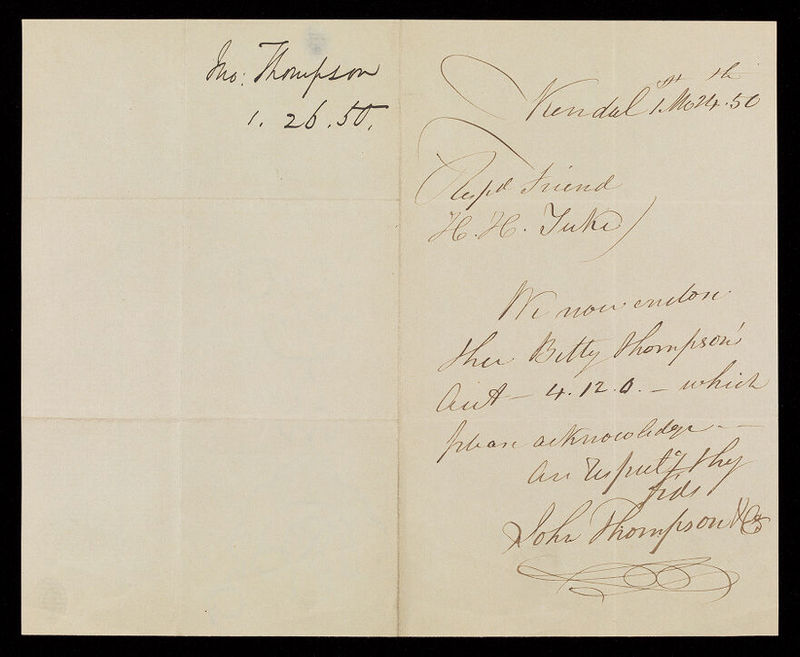 Jno: Thompson
1. 26. 50.
Kendal 1st Mo 24th. 50
Respd Friend
H. H. Tuke
We now enclose
thee Betty Thompson'
Acct — 4. 12. 0. — which
please acknowledge. —
are respectfy thy
frds
John Thompson & Co